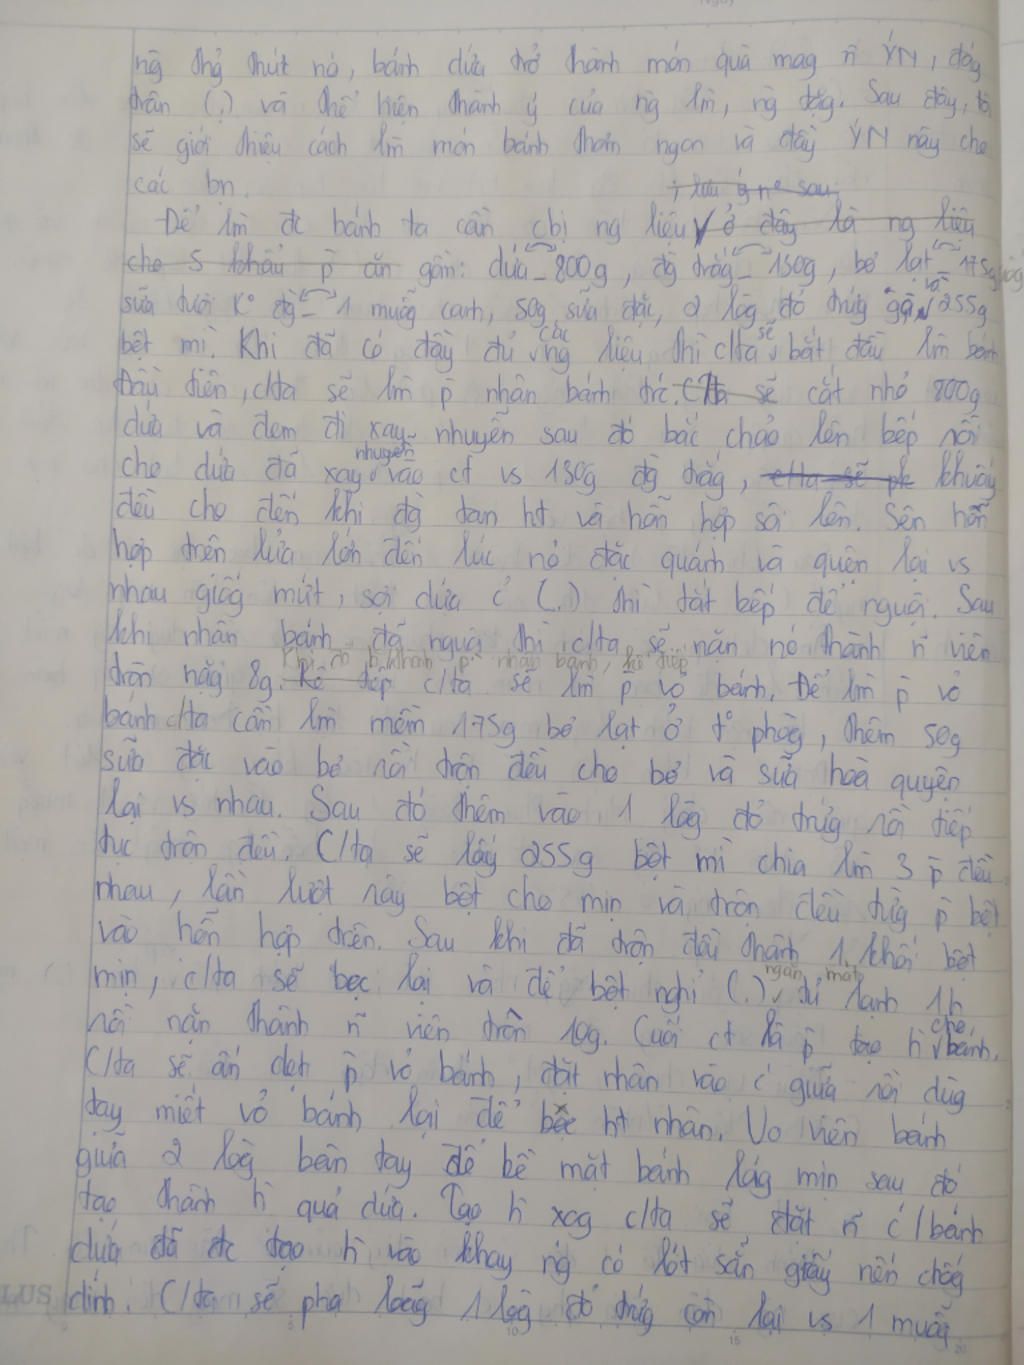 ng̃ thg̉ thứt nó, bánh dứa trở thành món quà mag ñ ÝN, đág
trân (.) và thể hiện thành ý của ng̀ lm̀, ng̀ tặg. Sau đây, tô
sẽ giới thiệu cách lm̀ món bánh thơm ngon và đầy ÝN này cho
các bn.
, lưu ý nº sau;
Để lm̀ đc bánh ta cần cbị ng liệu √ ở đây là ng liệu
cho 5 khẩu p̀ ăn gồm: dứa - 800g, đg̀ trắg - 130g, bơ lạt - 175g
sữa tươi Kº đg̀ - 1 muỗg canh, 50g sữa đặc, 2 lòg đỏ trứg gà √ và 255g
bột mì. Khi đã có đầy đủ √ các ng liệu thì c/ta √ sẽ bắt đầu lm̀ bánh
Đầu tiên, c/ta sẽ lm̀ p̀ nhân bánh trc. C/ta sẽ cắt nhỏ 800g
dứa và đem đi xay nhuyễn sau đó bắc chảo lên bếp rồi
cho dứa đã xay nhuyễn vào cf vs 130g đg̀ trắg, c/ta sẽ pk khuấy
đều cho đến khi đg̀ tan ht và hỗn hợp sôi lên. Sên hỗn
hợp trên lửa lớn đến lúc nó đặc quánh và quện lại vs
nhau giốg mứt, sợi dứa ć (.) thì tắt bếp để nguội. Sau
khi nhân bánh đã nguội thì c/ta sẽ nặn nó thành ñ viên
tròn nặg 8g. Kế tiếp c/ta sẽ lm̀ p̀ vỏ bánh. Để lm̀ p̀ vỏ
bánh c/ta cần lm̀ mềm 175g bơ lạt ở tº phòg, thêm 50g
sữa đặc vào bơ rồi trộn đều cho bơ và sữa hoà quyện
lại vs nhau. Sau đó thêm vào 1 lòg đỏ trứg rồi tiếp
tục trộn đều. C/ta sẽ lấy 255g bột mì chia lm̀ 3 p̀ đều
nhau, lần lượt rây bột cho mịn và trộn đều từg p̀ bột
vào hỗn hợp trên. Sau khi đã trộn đều thành 1 khối bột
mịn, c/ta sẽ bọc lại và để bột nghỉ (.) √ ngăn mát tủ lạnh 1h
rồi nặn thành ñ viên tròn 10g. Cuối cf là p̀ tạo h̀ √ cho bánh.
C/ta sẽ ấn dẹt p̀ vỏ bánh, đặt nhân vào ć giữa rồi dùg
tay miết vỏ bánh lại để bọc ht nhân. Vo viên bánh
giữa 2 lòg bàn tay để bề mặt bánh lág mịn sau đó
tạo thành h̀ quả dứa. Tạo h̀ xog c/ta sẽ đặt ñ ć/bánh
dứa đã đc tạo h̀ vào khay ng có lót sẵn giấy nến chốg
dính. C/ta sẽ pha loãg 1 lòg đỏ trứg còn lại vs 1 muỗg